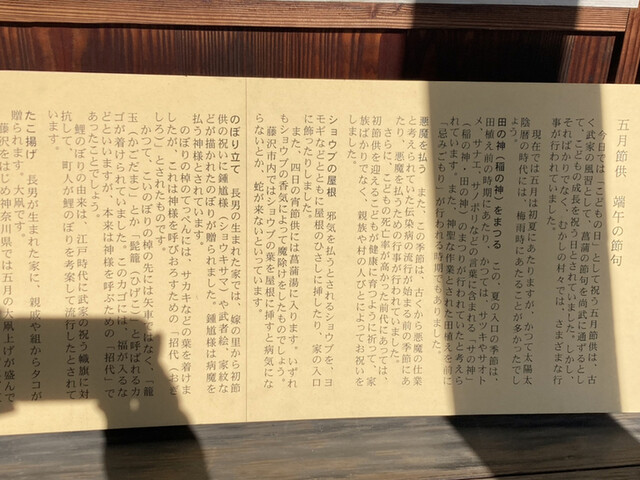 五月節供　端午の節句
今日では「こどもの日」として祝う五月節供は、古
く武家の風習として、菖蒲の節句を尚武に通ずるとし
て、こどもの成長を祝う日とされていました。しかし、
そればかりでなく、むかしの村では、さまざまな行
事が行われていました。
現在では五月は初夏にあたりますが、かつて太陽太
陰暦の時代には、梅雨時にあたることが多かったでし
ょう。
田の神（稲の神）をまつる　この、夏の入口の季節は、
田植え前の時期にあたり、かつては、サツキやサオト
メ、サナエ、サノボリなどの言葉に含まれる「サの神」
（稲の神・田の神）のまつりが行われていたと考えら
れています。また、神聖な作業とされた田植えを前に
「忌みごもり」が行われる時期でもありました。
悪魔を払う　また、この季節は、古くから悪魔の仕業
と考えられていた伝染病の流行が始まる前の時節にあ
たり、悪魔を払うための行事が行われていました。
さらに、こどもの死亡率が高かった前代にあっては、
初節供を迎えるこどもが健康に育つように祈って、家
族ばかりでなく、親族や村の人びとによってお祝いを
しました。
ショウブの屋根　邪気を払うとされるショウブを、ヨ
モギなどとともに屋根のひさしに挿したり、家の入口
に飾ったりしました。
また、四日の宵節供には菖蒲湯に入ります。いずれ
もショウブの香気によって魔除けをしたものでしょう。
藤沢市内ではショウブの葉を屋根に挿すと病気にな
らないとか、蛇が来ないといっています。
のぼり立て　長男の生まれた家では、嫁の里から初節
供の祝いに鍾馗様（ショウキサマ）や武者絵、家紋な
どが描かれたのぼりが贈られました。鍾馗様は病魔を
払う神様とされています。
のぼりの棹のてっぺんには、サカキなどの葉を着けま
したが、これは神様を呼びおろすための「招代（おぎ
しろ）」とされたものです。
かつて、こいのぼりの棹の先には矢車ではなく、「籠
玉（かごだま）」とか「髭籠（ひげこ）」と呼ばれるカ
ゴが着けられていました。このカゴには「福が入るな
どといいますが、本来は神様を呼ぶための「招代」で
あったことでしょう。
鯉のぼりの由来は、江戸時代に武家の祝う幟旗に対
抗して、町人が鯉のぼりを考案して流行したとされて
います。
たこ揚げ　長男が生まれた家に、親戚や組からタコが
贈られます。大凧です。
藤沢をはじめ神奈川県では五月の大凧上げが盛んで